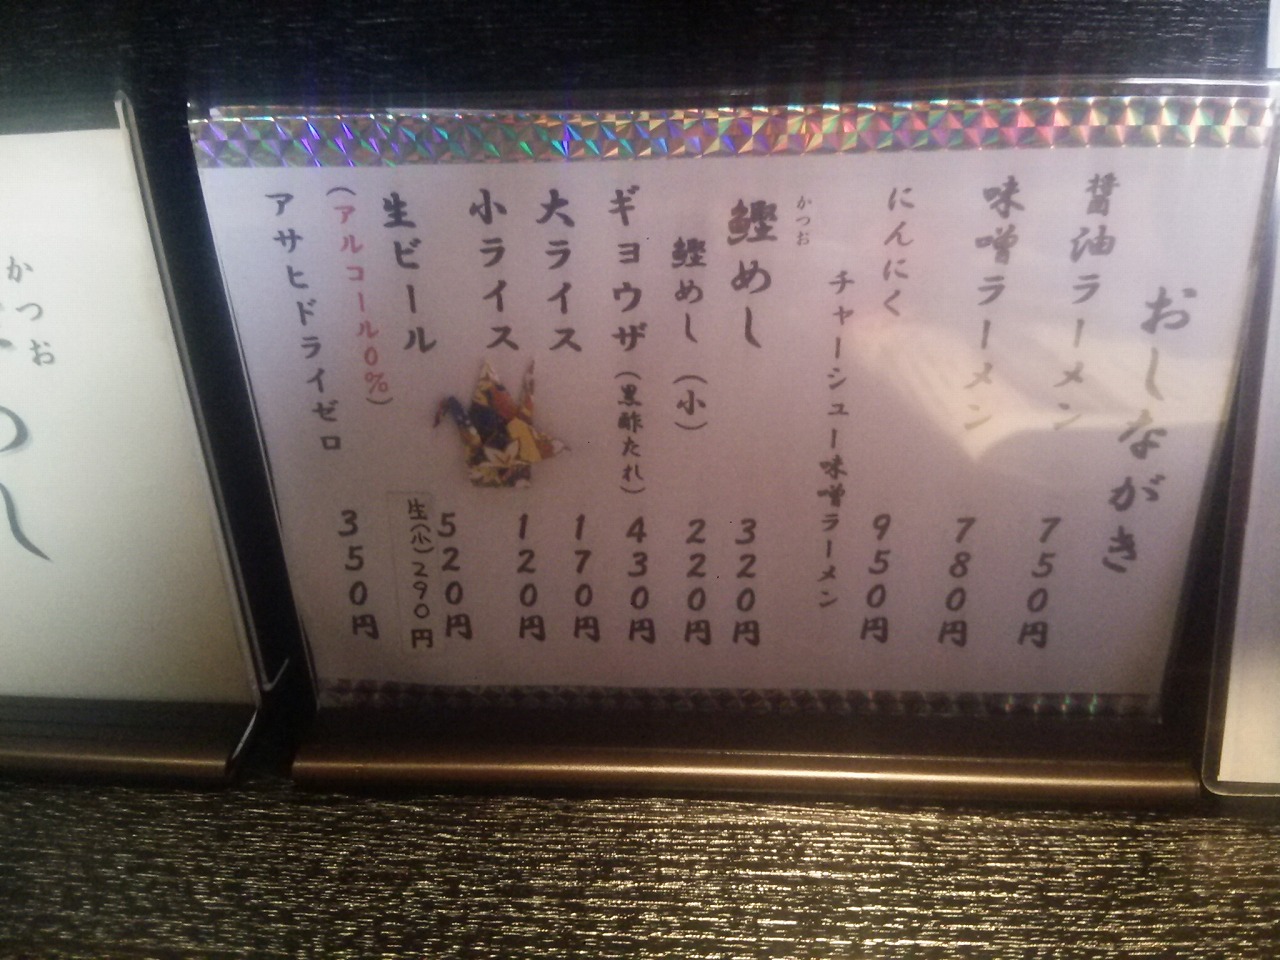 おしながき
醤油ラーメン 750円
味噌ラーメン 780円
にんにく 950円
チャーシュー味噌ラーメン
かつお
鰹めし 320円
鰹めし（小） 220円
ギョウザ（黒酢たれ） 430円
大ライス 170円
小ライス 120円
生ビール 520円
生(小)290円
（アルコール0%）
アサヒドライゼロ 350円
かつお
めし